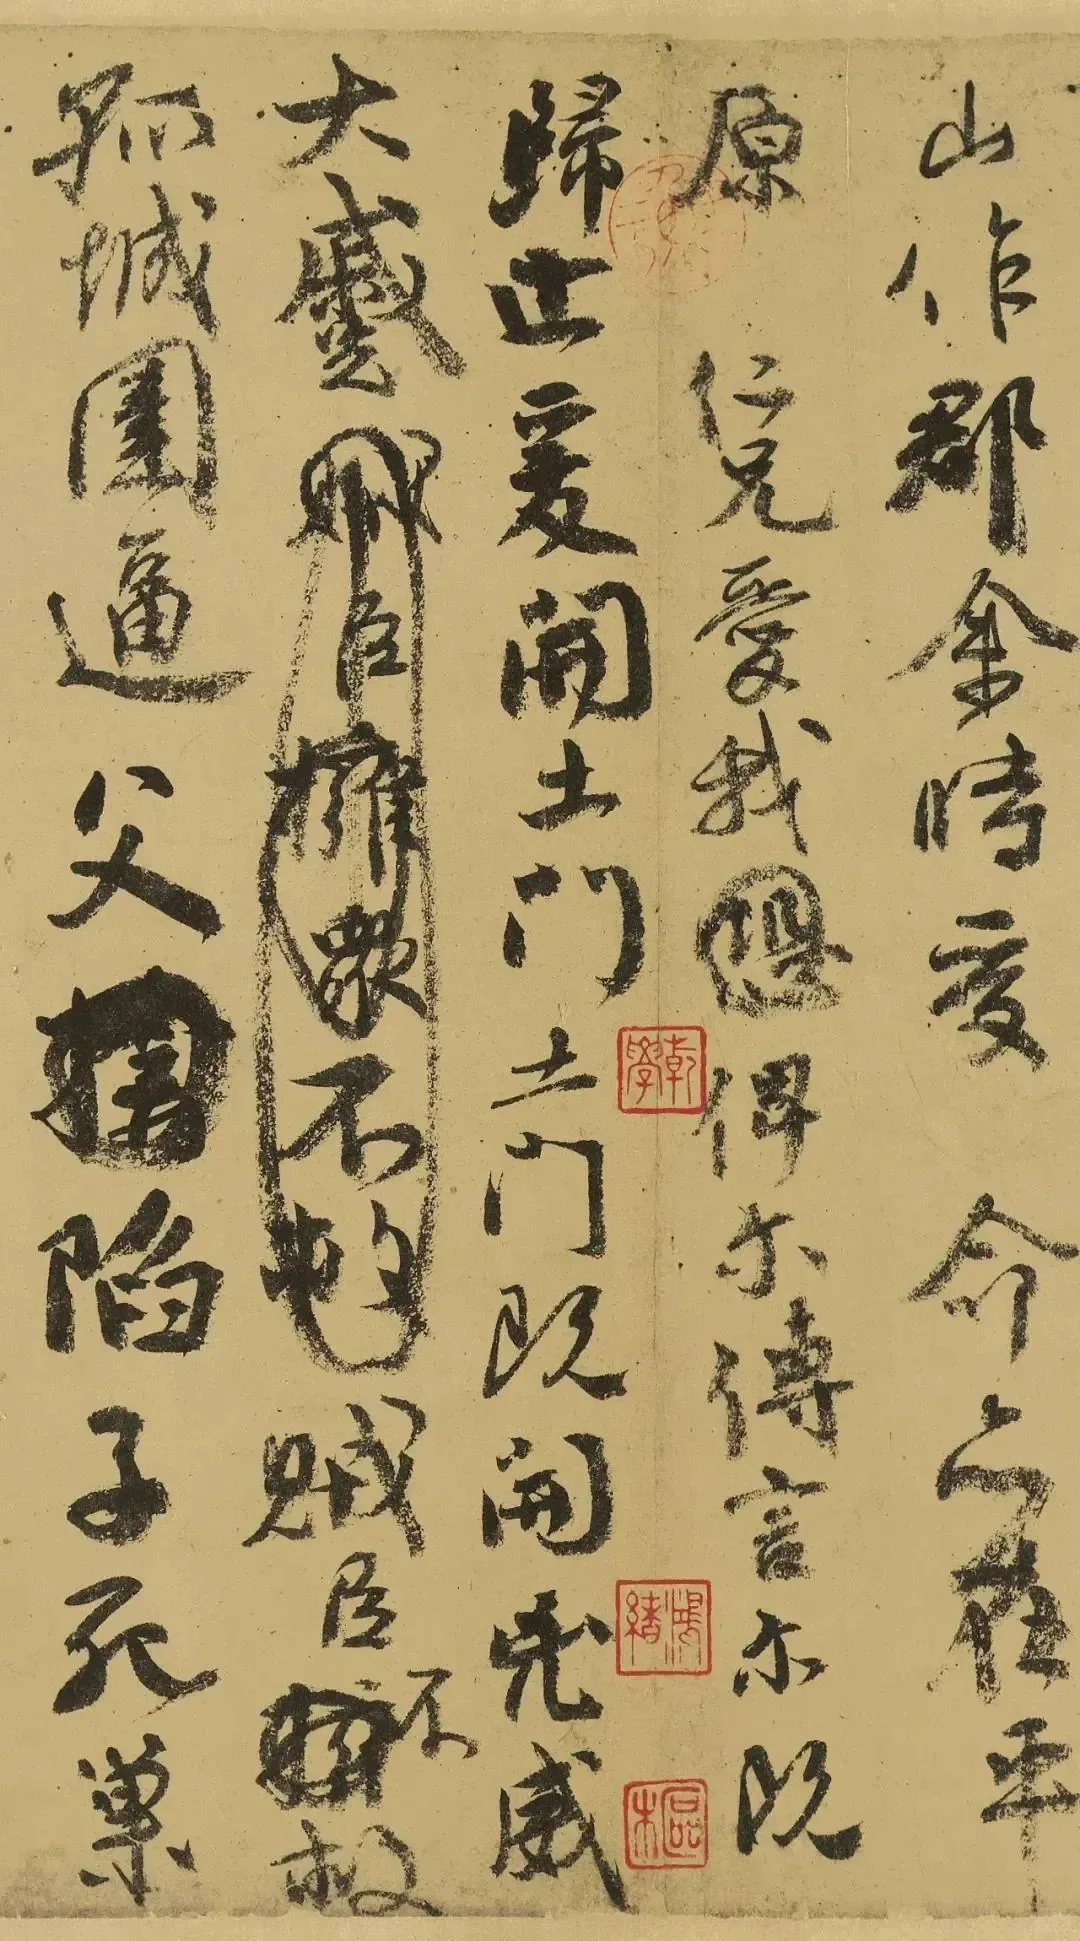 山作郡余時受命亦在平
原仁兄愛我俾尔傳言尔既
歸止爰開土門土門既開凶威
大蹙賊臣擁衆不救賊臣不救
孤城圍逼父陷子死巢
乾學